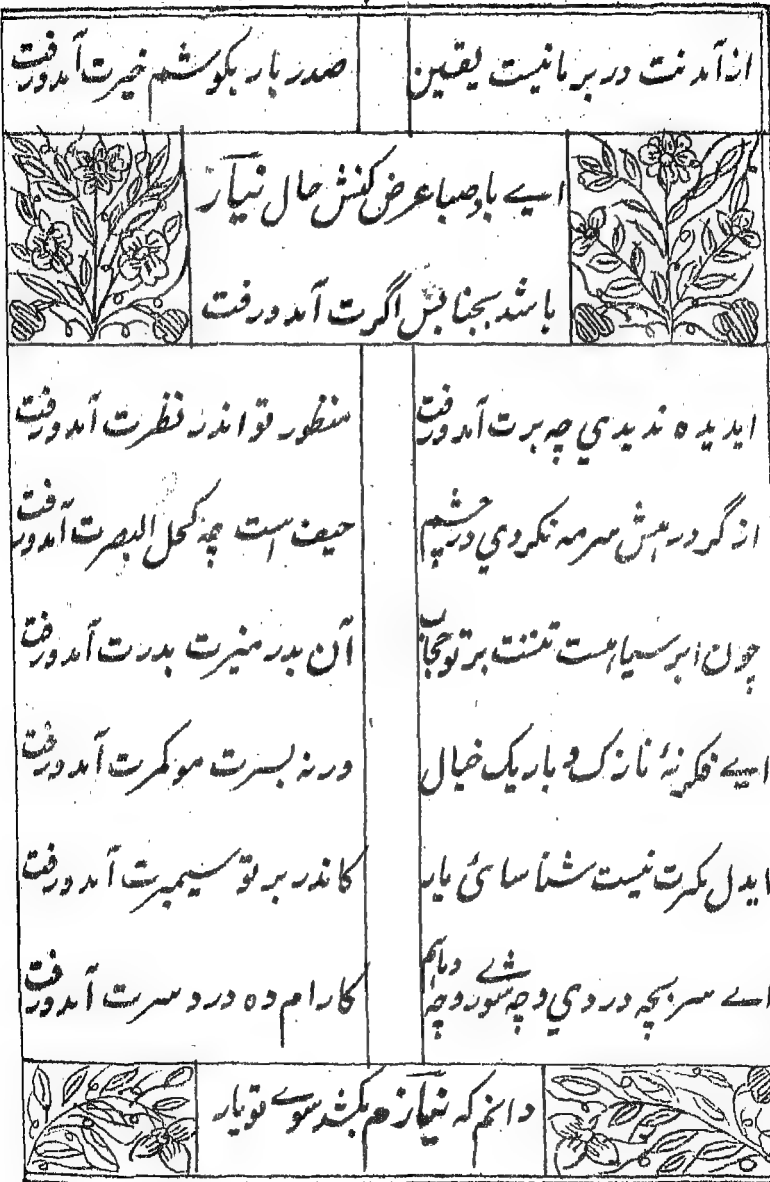 از آمدنت در بر ما نیست یقین
صدر بار بگوشم خبرت آمدورفت
ایے باد صبا عرض کنش حال نیاز
باشد بجنابش اگرت آمدورفت
ایدیده ندیدي چه برت آمدورفت
منظور تو اندر نظرت آمدورفت
از گرد رهش سرمه نکردي در چشم
حیف است چه کحل البصرت آمدورفت
چون ابر سیاهست تننت بر تو حجاب
آن بدر منیرت بدرت آمدورفت
ایے فکر نۂ نازک و باریک خیال
ورنه بسرت موکمرت آمدورفت
ایدل مگرت نیست شناسائ یار
کاندر بر تو سیمبرت آمدورفت
اے سر بچه دردي وچه شورے وچه
کارام ده درد سرت آمدورفت
دانم که نیاز هم بکشد سوے تو یار